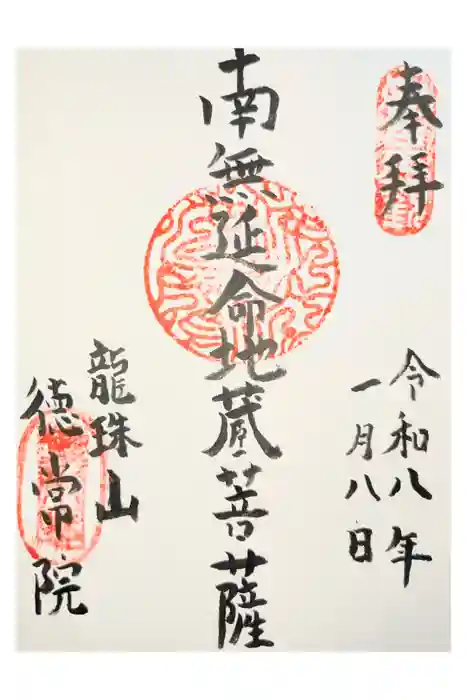 奉拝
令和八年
一月八日
南無延命地蔵菩薩
龍珠山
徳常院